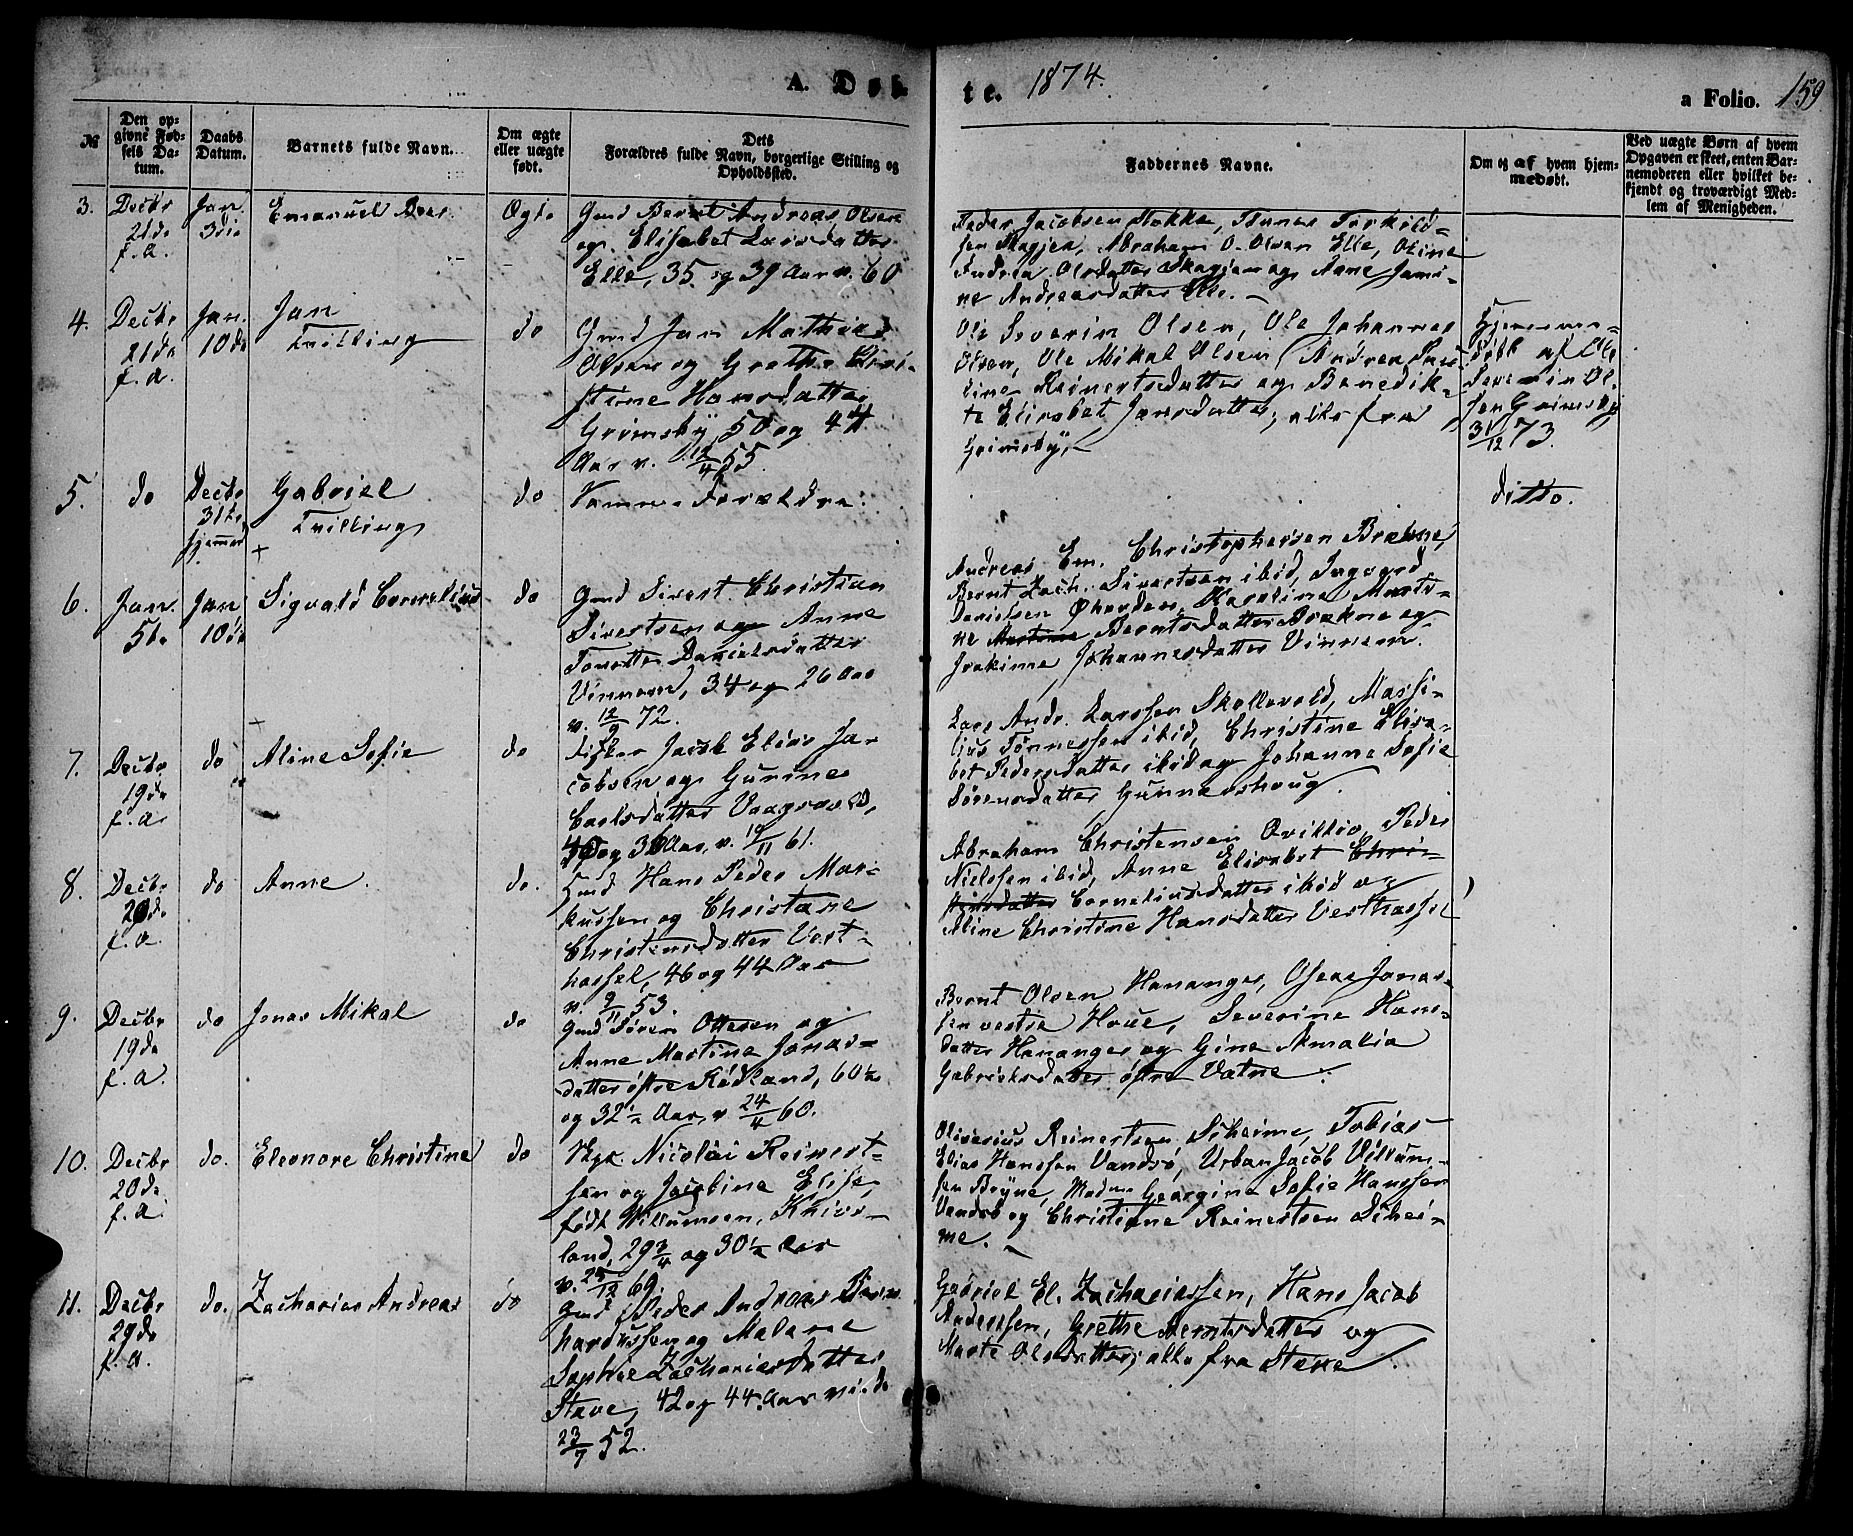 A. Døb-
te. 1874.
a Folio. 159
№
Den op-
givne Fød-
sels Da-
tum.
Daabs
Datum.
Barnets fulde Navn.
Om ægte
eller uægte
født.
Dets
Forældres fulde Navn, borgerlige Stilling og
Opholdssted.
Faddernes Navne.
Om og af hvem hjem-
medøbt.
Ved uægte Børn af hvem
Opgaven er skeet, enten Bar-
nemoderen eller hvilket be-
kjendt og troværdigt Med-
lem af Menigheden.
3.
Decbr
21de
f. a.
Jan.
3die
Emanuel
Ægte
Gmd Bernt Andreas Olsen
og Elisabet Larsdatter
Elle, 35 og 39 Aar v. 60
Peder Jacobsen Stokke, Torkild-
sen Skagjen, Abraham O. Olsen Elle, Oline
Olsdatter Skagjen og Anne
ne Andreasdatter Elle.
4.
Decbr
21de
f. a.
Jan.
10de
Jan
Tvilling
do
Gmd Jan Mathias
Olsen og Grethe Chri-
stine Hansdatter
Grimsby, 50 og 44
Aar v. 12/4 55.
Ole Severin Olsen, Ole Johannes
Olsen, Ole Mikal Olsen, Andrea
line Reinertsdatter og Benedik-
te Elisabet Jansdatter, alle fra
Grimsby.
Hjemme-
døbt af Ole
Severin Ol-
sen Grimsby
31/12 73.
5.
do
Decbr
31te
hjemmed.
Gabriel
Tvilling
+
do
Samme Forældre.
ditto.
6.
Jan.
5te
Jan
10de
Sigvald Cornelius
do
Gmd Sivert Christian
Sivertsen og Anne
Tonette Danielsdatter
Vinnem, 34 og 26 Aar
v. 12/9 72.
Andreas Em. Christophersen Brekne,
Bernt Zach. Sivertsen ibid, Ingvard
Karoline Marti-
ne Martine Berntsdatter Brekne og
Joakime Johannesdatter Vinnem.
7.
Decbr
19de
f. a.
do
+
Aline Sofie
do
Fisker Jacob Elias Ja-
cobsen og Gurine
Carlsdatter Vaagsvold,
40 og 36 Aar, v. 10/11 61.
Lars Andr. Larssen Skollevold, Massi-
lius Tønnessen ibid, Christine Elisa-
bet Pedersdatter ibid og Johanne Sofie
Sørensdatter Gunnershoug.
8.
Decbr
20de
f. a.
do
Anne.
do.
Gmd Hans Peder Mar-
kussen og Christane
Christensdatter Vest-
hassel, 46 og 44 Aar
v. 9/11 53.
Abraham Christensen Ovidtsø, Peder
Nielssen ibid, Anne Elisabet Chri-
stensdatter Corneliusdatter ibid og
Aline Christine Hansdatter Vesthassel
9.
Decbr
19de
f. a.
do
Jonas Mikal
do
Gmd Søren Ottesen og
Anne Martine Jonas-
datter østre Rødland, 60½
og 32½ Aar, v 24/4 60.
Bernt Olsen Hananger, Oseas Jonas-
sen vestre Houe, Severine Hans-
datter Hananger og Gine Amalia
Gabrielsdatter østre Vatne.
10.
Decbr
20de
f. a.
do.
Eleonore Christine
do
Skpr. Nicolai Reinert-
sen og Jacobine Elise,
født Willumsen, Knivs-
land, 29¾ og 30½ Aar
v. 25/12 69.
Oliverius Reinertsen Scheime, Tobias
Elias Hanssen Vandsø, Urban Jacob Villum-
sen Bryne, Madme Georgine Sofie Hanssen
Vandsø og Christiane Reinertsen Schei-
me.
11.
Decbr
29de
f. a.
do.
Zacharias Andreas
do
Gmd Peder Andreas Bern-
hardussen og Malene
Sophie Zachariasdatter
Stave, 42 og 44 Aar vi.de
23/7 52.
Gabriel El. Zachariassen, Hans Jacob
Anderssen, Grethe Berntsdatter og
Marte Olsdatter, alle fra Stave.